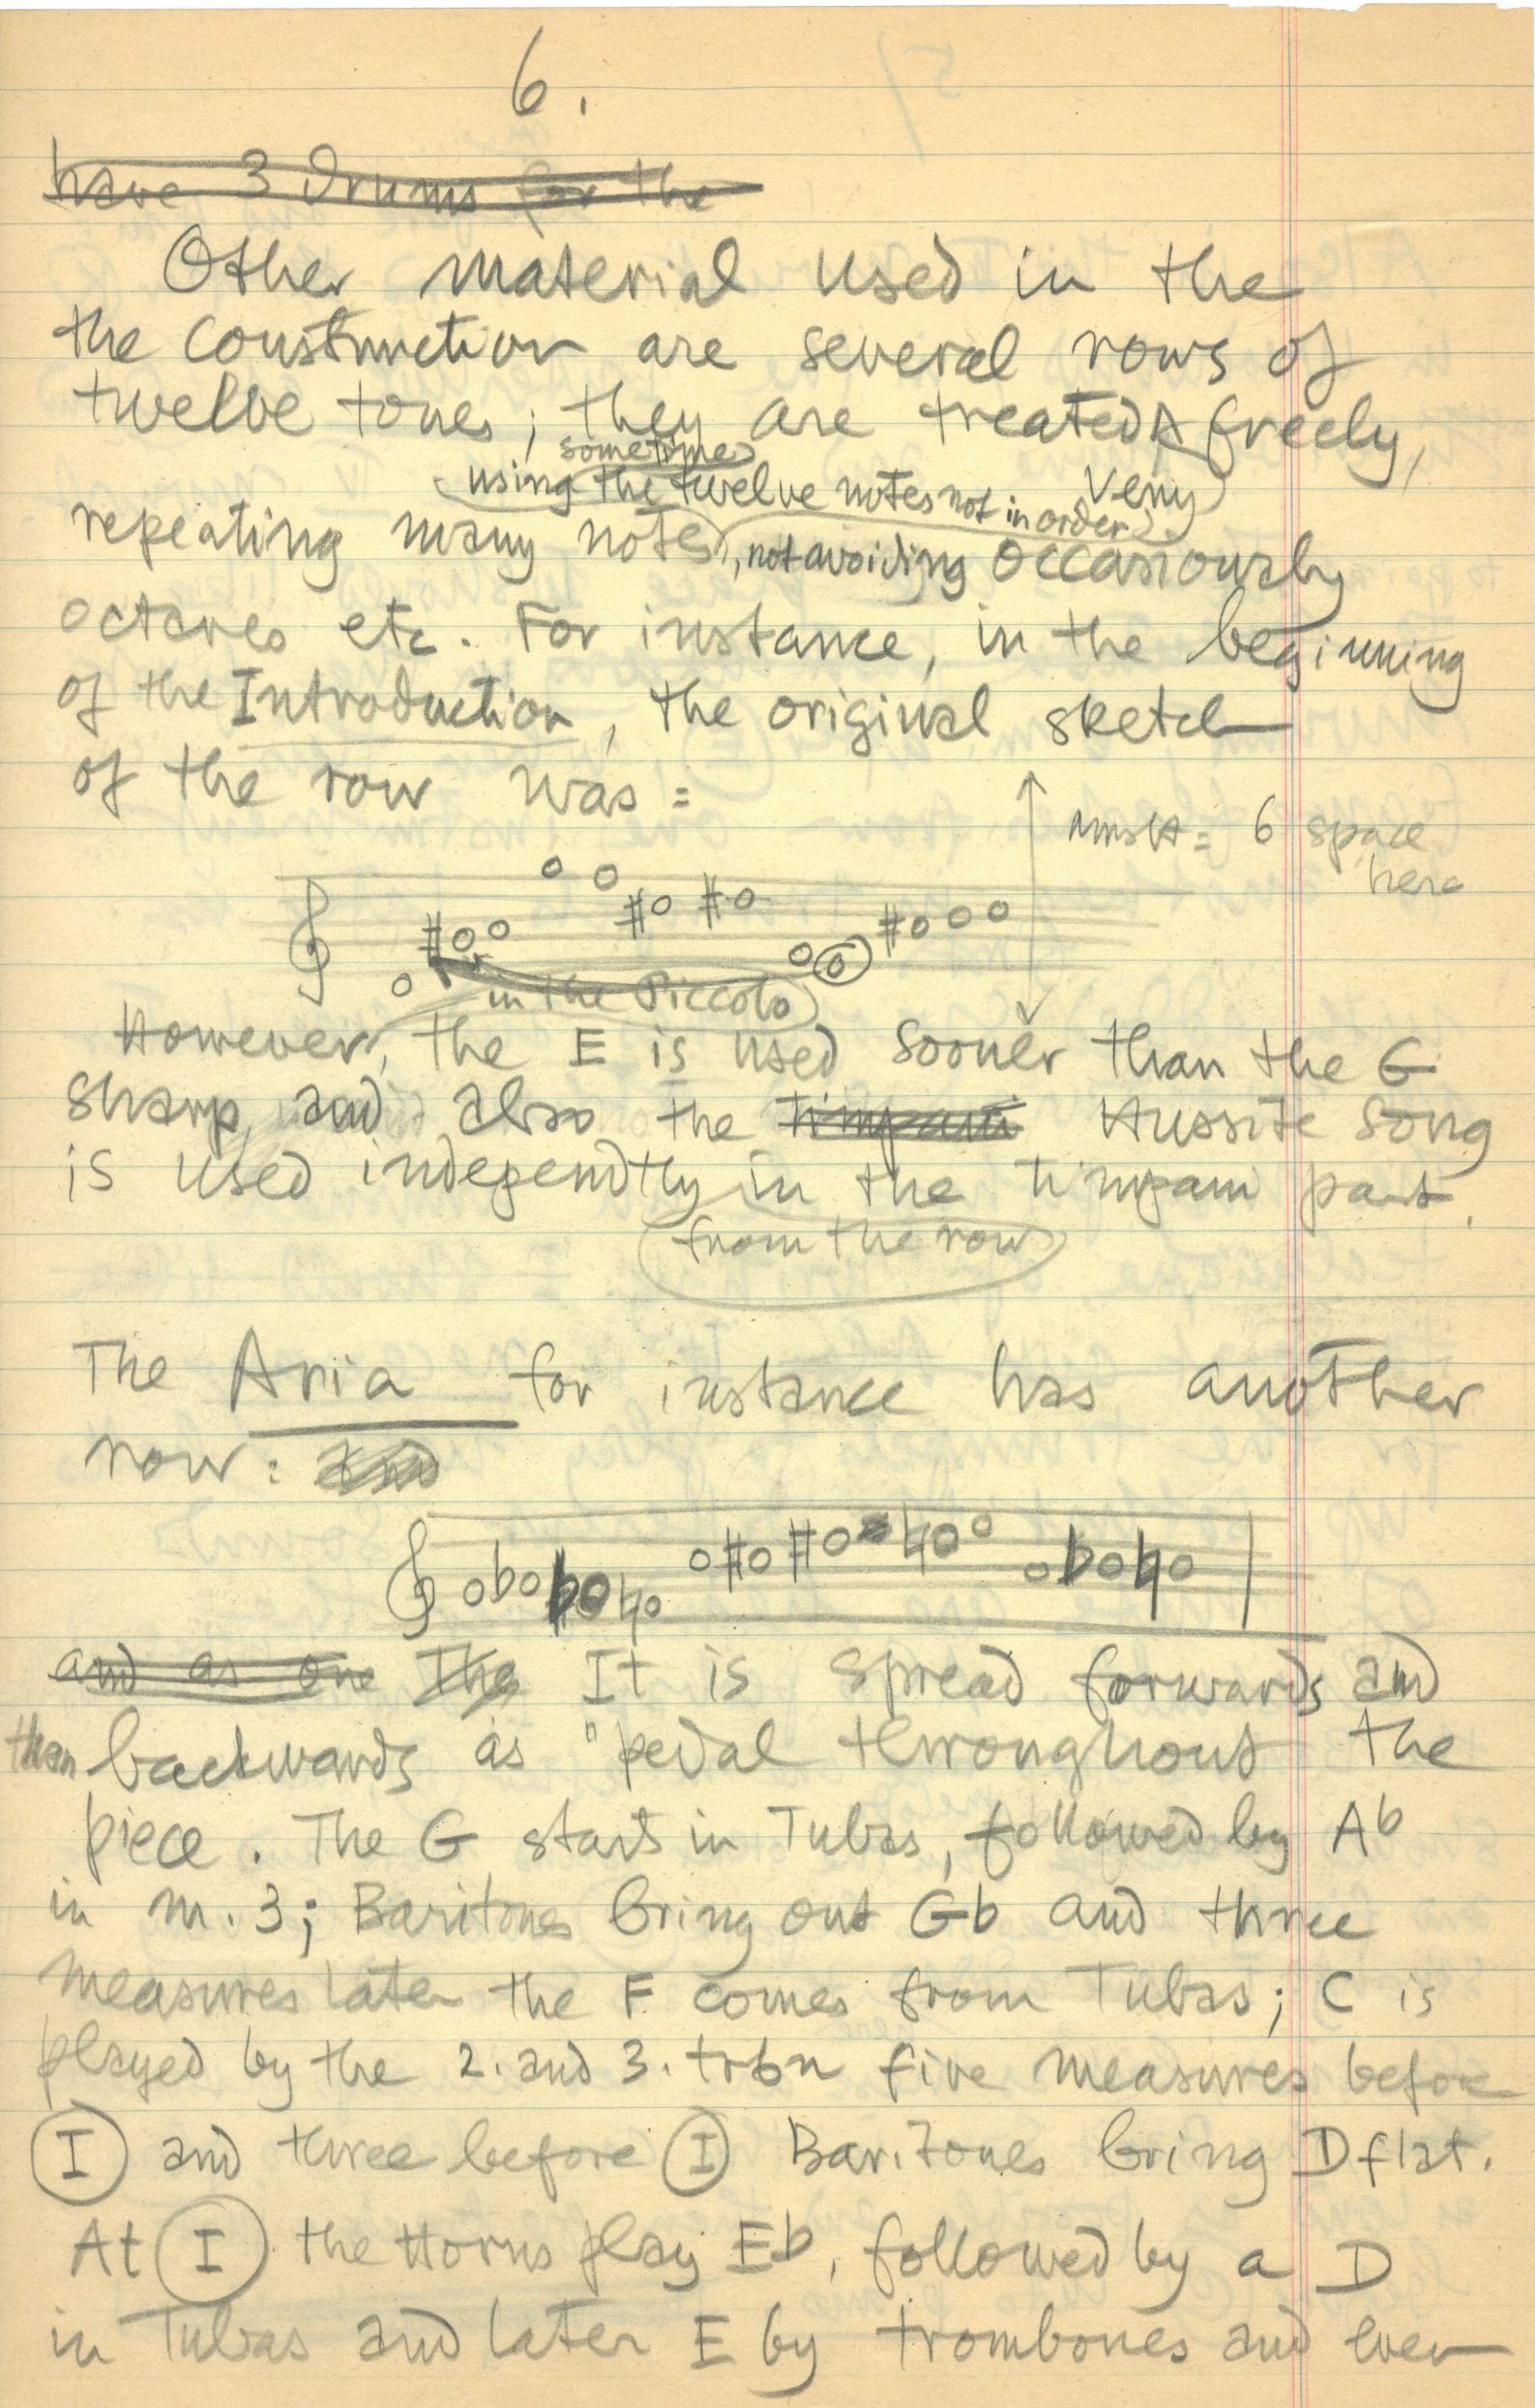 6.
have 3 drums for the
Other material used in the
the construction are several rows of
twelve tones; they are treated freely,
sometimes
using the twelve notes not in order
very
repeating many notes, not avoiding occasionally
octaves etc. For instance, in the beginning
of the Introduction, the original sketch
of the row was:
6 space
here
in the Piccolo
However, the E is used sooner than the G
sharp and also the timpani Hussite song
is used independtly in the timpani part.
from the row
The Aria for instance has another
row:
and as one The It is spread forwards and
then backwards as "pedal throughout the
piece. The G starts in Tubas, followed by Ab
in m. 3; Baritones bring out Gb and three
measures later the F comes from Tubas; C is
played by the 2. and 3. trbn five measures before
I and three before I Baritones bring D flat.
At I the Horns play Eb, followed by a D
in Tubas and later E by trombones and even